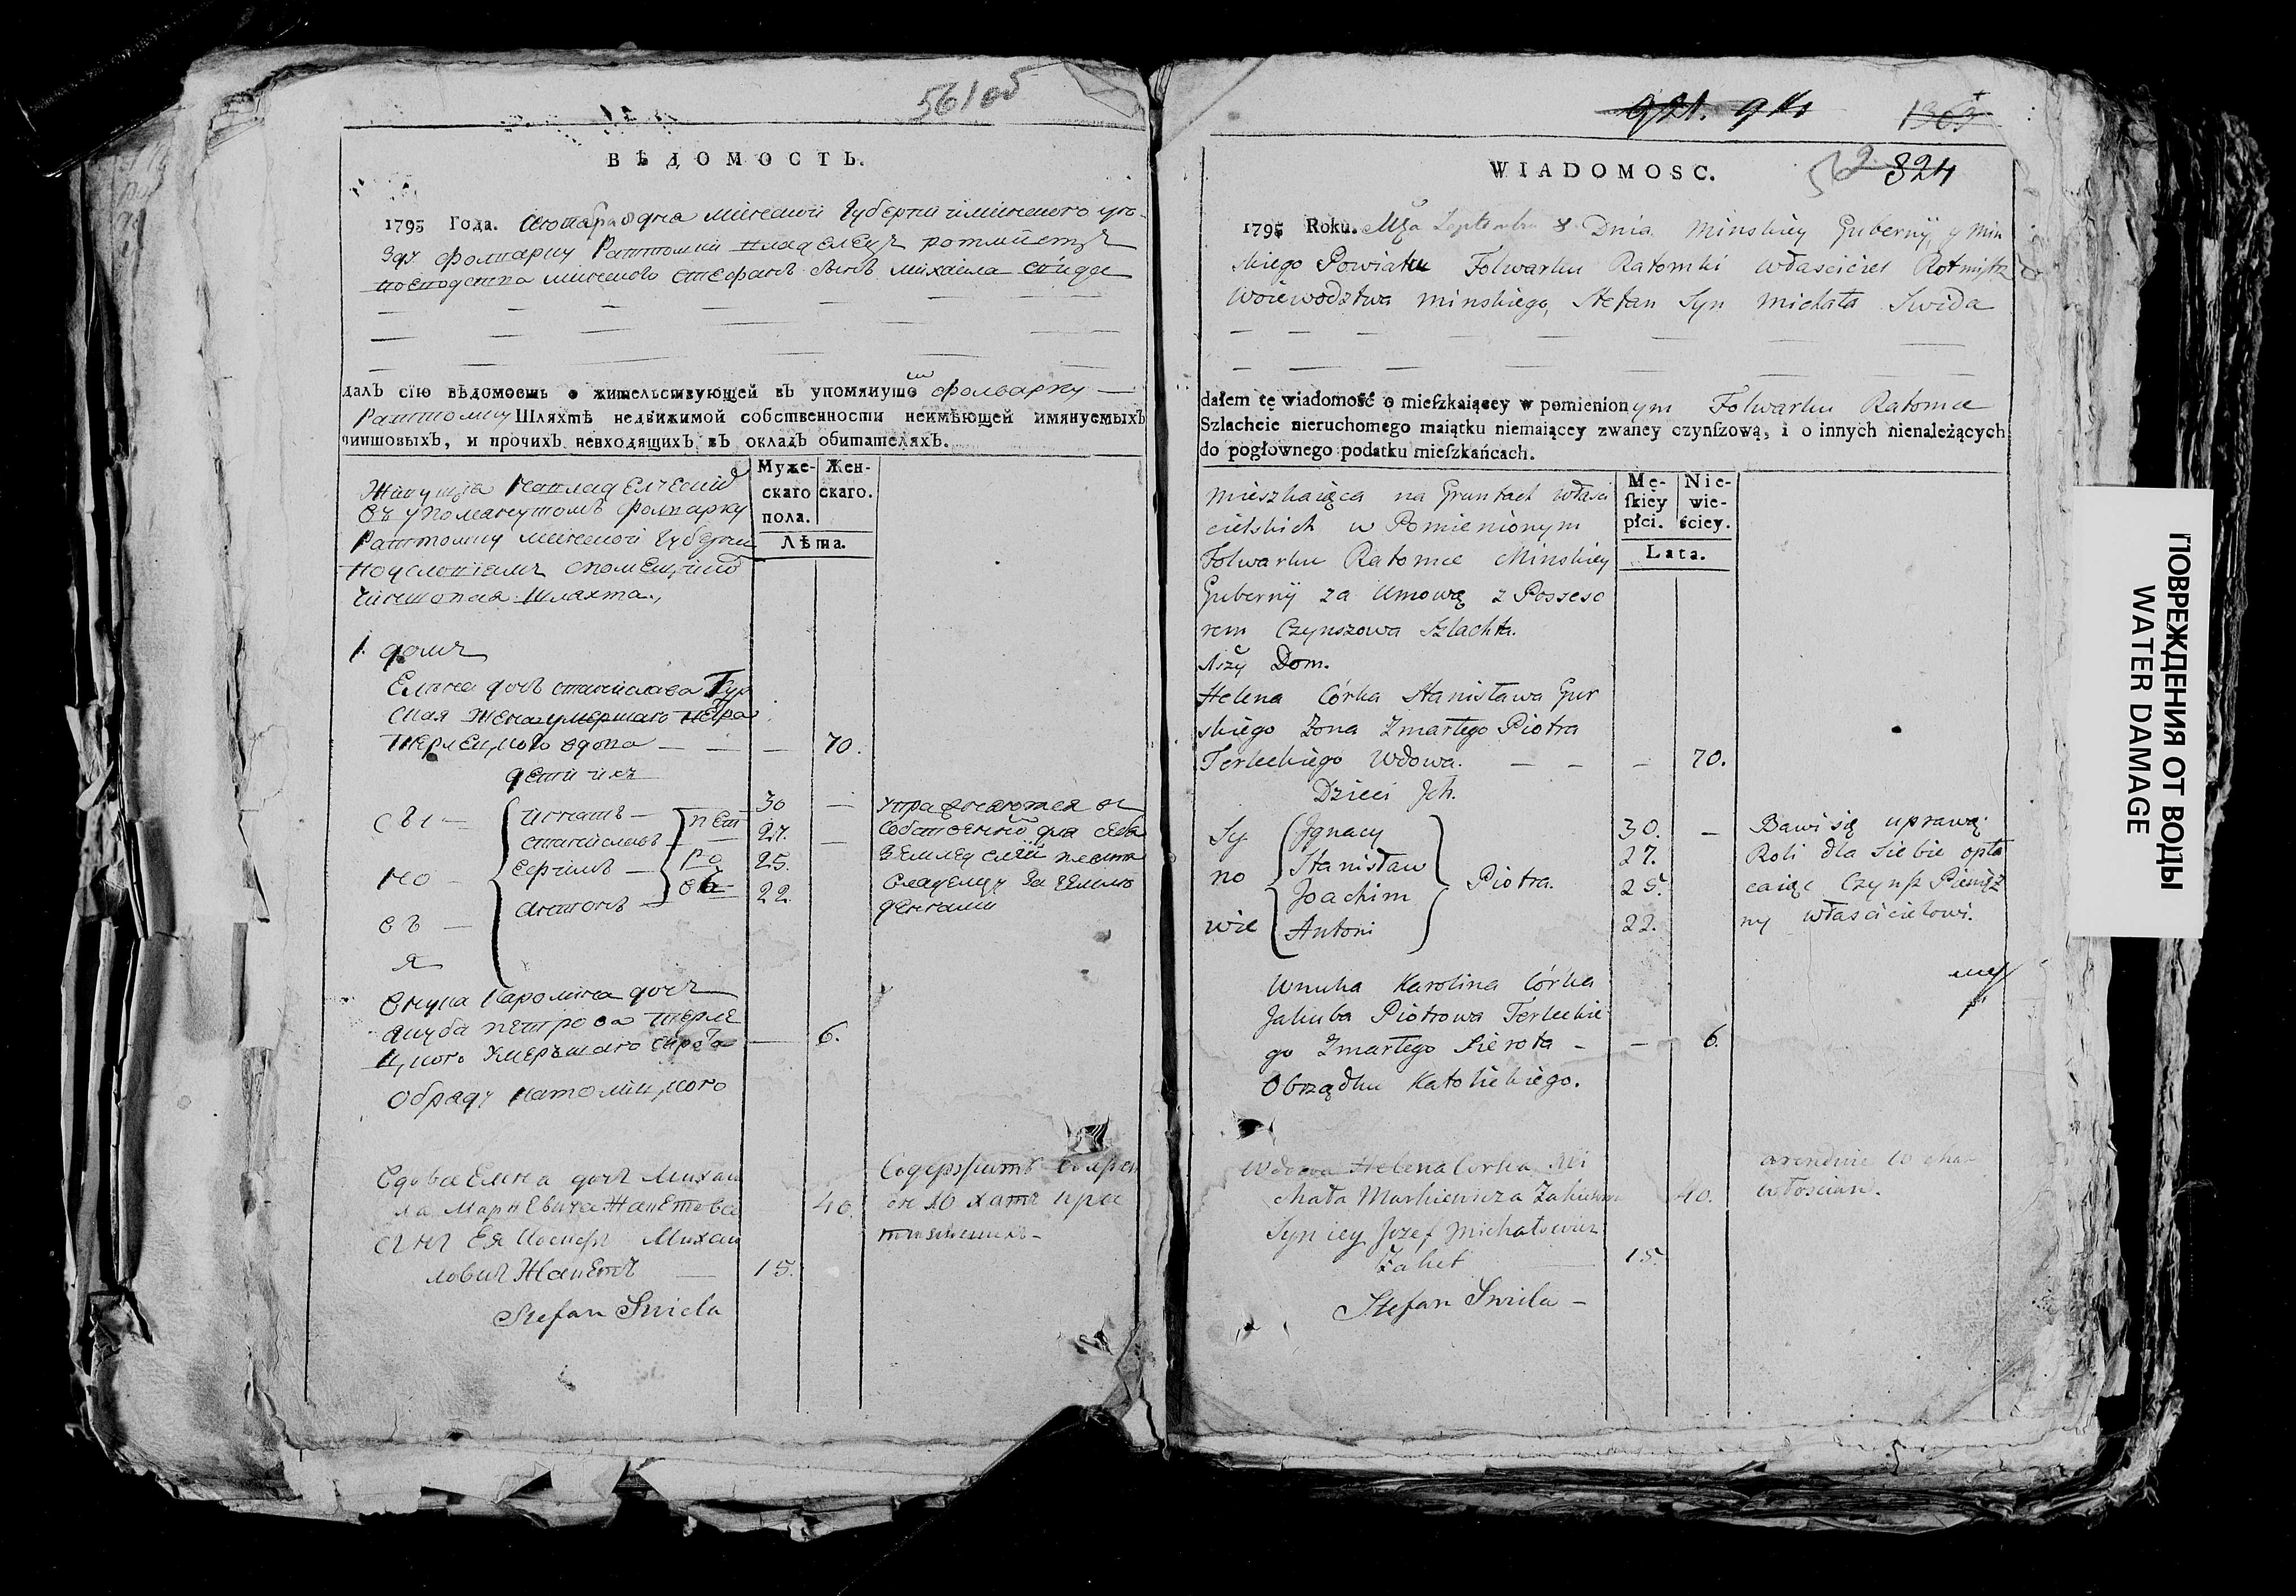 561 об
ВѢДОМОСТЬ.
1795 Года. дня Минской Губернии Минского
фолварку Раттомки владелецъ ротмистръ
воеводства Минского Стефанъ сынъ Михаила Свида
далъ сїю вѣдомость о жительствующей въ упомянутѡ фолварку
Раттомку Шляхтѣ недвижимой собственности неимѣющей имянуемыхъ
чиншовыхъ, и прочихъ невходящихъ въ окладъ обитателяхъ.
Муже- Жен-
скаго скаго.
пола.
Лѣта.
Живуща
въ упоманутомъ фолварку
Раттомку Минской Губерни
чиншовая шляхта.
1. домъ
Елена дочь станислава Гур
ская жена умершаго петра
терлецкого вдова — — — 70.
дети ихъ
Игнатъ — 30 —
станиславъ 27. —
Ефимъ — 25.
Антонъ — 22.
сы
но
вь
я
пет
ро
вы
упражняются въ
собственной для себя
земледелїй
владелцу за землю
денгами
Внука Каролина дочь
якуба петрова терле
цкого умершаго сирота — 6.
обряду католицкого
Вдова Елена дочь Михаи
ла Маркевича Жакетова 40.
сынъ Ея Иосифъ Михаи
ловичъ Жакетъ — 15.
Содержитъ
10 хатъ
Stefan Swida
1363
562 824
WIADOMOSC.
1795 Roku. Mca Septembra 8 Dnia Minskiey Gubernÿ, y Min
skiego Powiatu Folwarku Ratomki właściciel Rotmistrz
Woiewodztwa Minskiego, Stefan Syn Michała Swida
dałem tę wiadomość o mieſzkaiącey w pomienionym Folwarku Ratomce
Szlachcie nieruchomego maiątku niemaiącey zwaney czynſzową, i o innych nienależących
do pogłownego podatku mieſzkańcach.
Mę- Nie-
ſkiey wie-
płci. ściey.
Lata.
Mieszkaiąca na Gruntach właści
cielskich w Pomienionym
Folwarku Ratomce Minskiey
Gubernÿ za Umową z Possesso
rem Czynszowa Szlachta.
1szy Dom.
Helena Córka Stanisława Gur
skiego Zona Zmarłego Piotra
Terleckiego Wdowa. — — — 70.
Dzieci Jch.
Sy
no
wie
Jgnacy 30. —
Stanisław 27.
Joachim 25.
Antoni 22.
Piotra.
Bawi się uprawą
Roli dla siebie opła
caiąc Czynſz Pienięż
ny właścicielowi.
Wnuka Karolina Córka
Jakuba Piotrowa Terleckie
go Zmarłego Sierota — — 6.
Obrządku Katolickiego.
Wdowa Helena Corka Mi
chała Markiewicza 40.
Syn iey Jozef Michałowicz
Żaket 15.
arenduie 10 chat
włoscian.
Stefan Swida —
ПОВРЕЖДЕНИЯ ОТ ВОДЫ
WATER DAMAGE